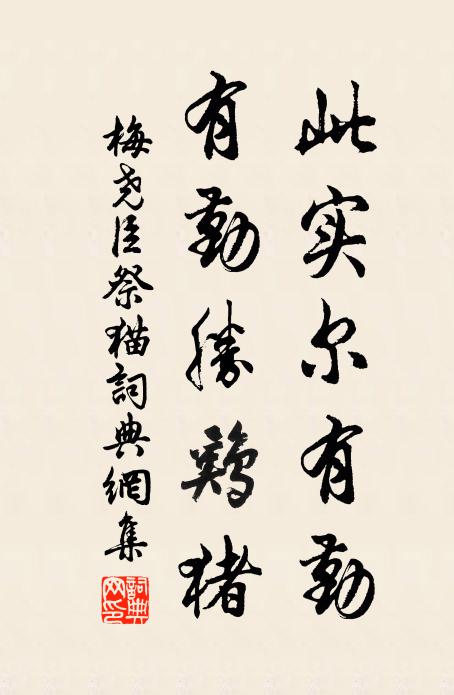 此实尔有勤
有勤勝鷄猪
梅尧臣祭猫詞典網集
詞典网印